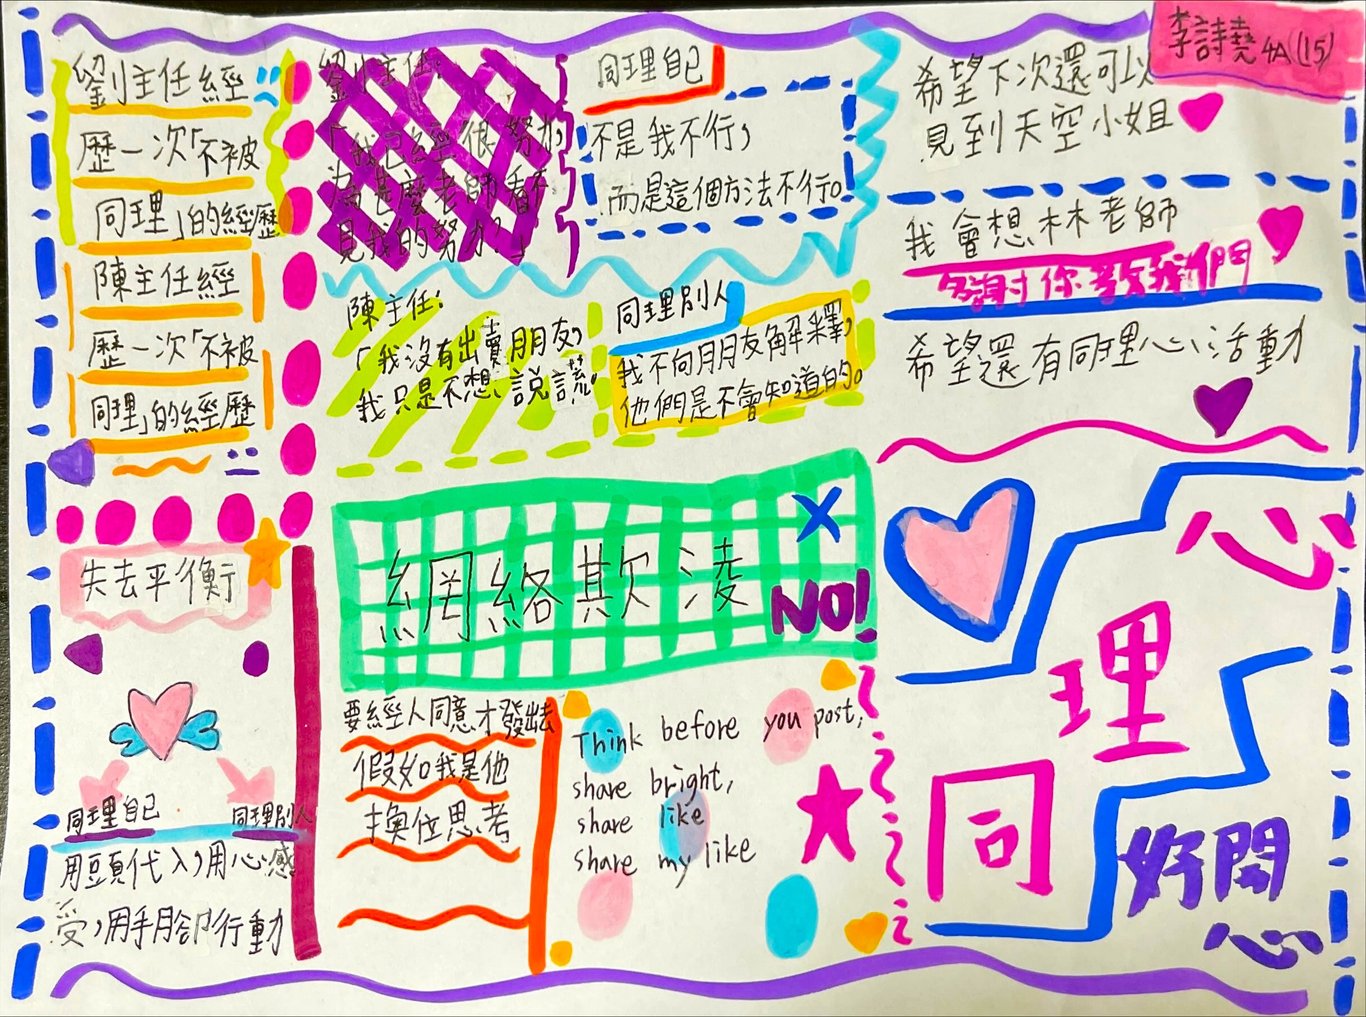 李詩堯 4A(15)
劉主任經
歷一次「不被
同理」的經歷
陳主任經
歷一次「不被
同理」的經歷
劉主任:
「我已經很努力,
為甚麼老師看不
見我的努力?」
同理自己
不是我不行,
而是這個方法不行。
陳主任:
「我沒有出賣朋友,
我只是不想說謊。
同理別人
我不向朋友解釋,
他們是不會知道的。
希望下次還可以
見到天空小姐
我會想林老師
多謝你教我們
希望還有同理心活動
失去平衡
同理自己
同理別人
用頭代入,用心感
受,用手腳行動
網絡欺凌
NO!
要經人同意才發出去
假如我是他
換位思考
Think before you post,
share bright,
share like
share my like
同理心
好開心